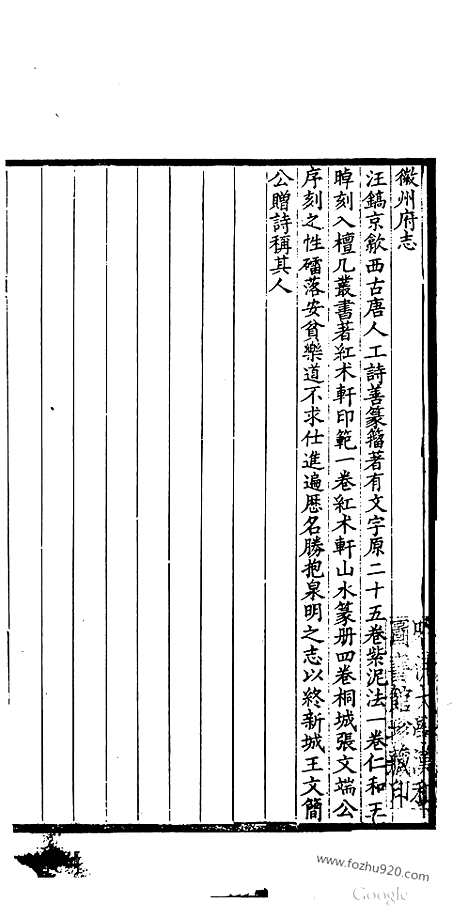 徽州府志
汪鎬京歙西古唐人工詩善篆籀著有文字原二十五卷紫泥法一卷仁和王
晫刻入檀几叢書著紅术軒印範一卷紅术軒山水篆册四卷桐城張文端公
序刻之性礌落安貧樂道不求仕進遍歷名勝抱泉明之志以終新城王文簡
公贈詩稱其人
www.fozhu920.com
Google